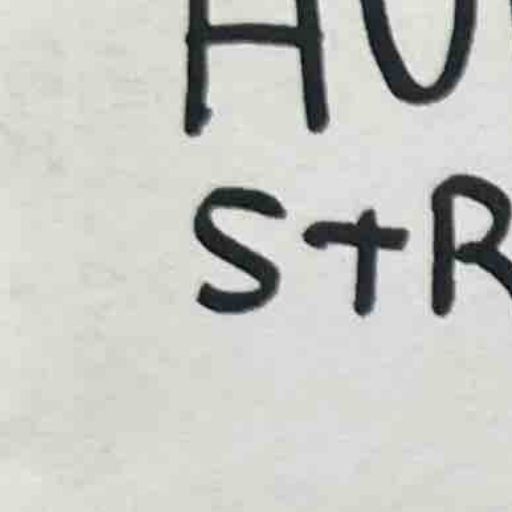 HU
StR